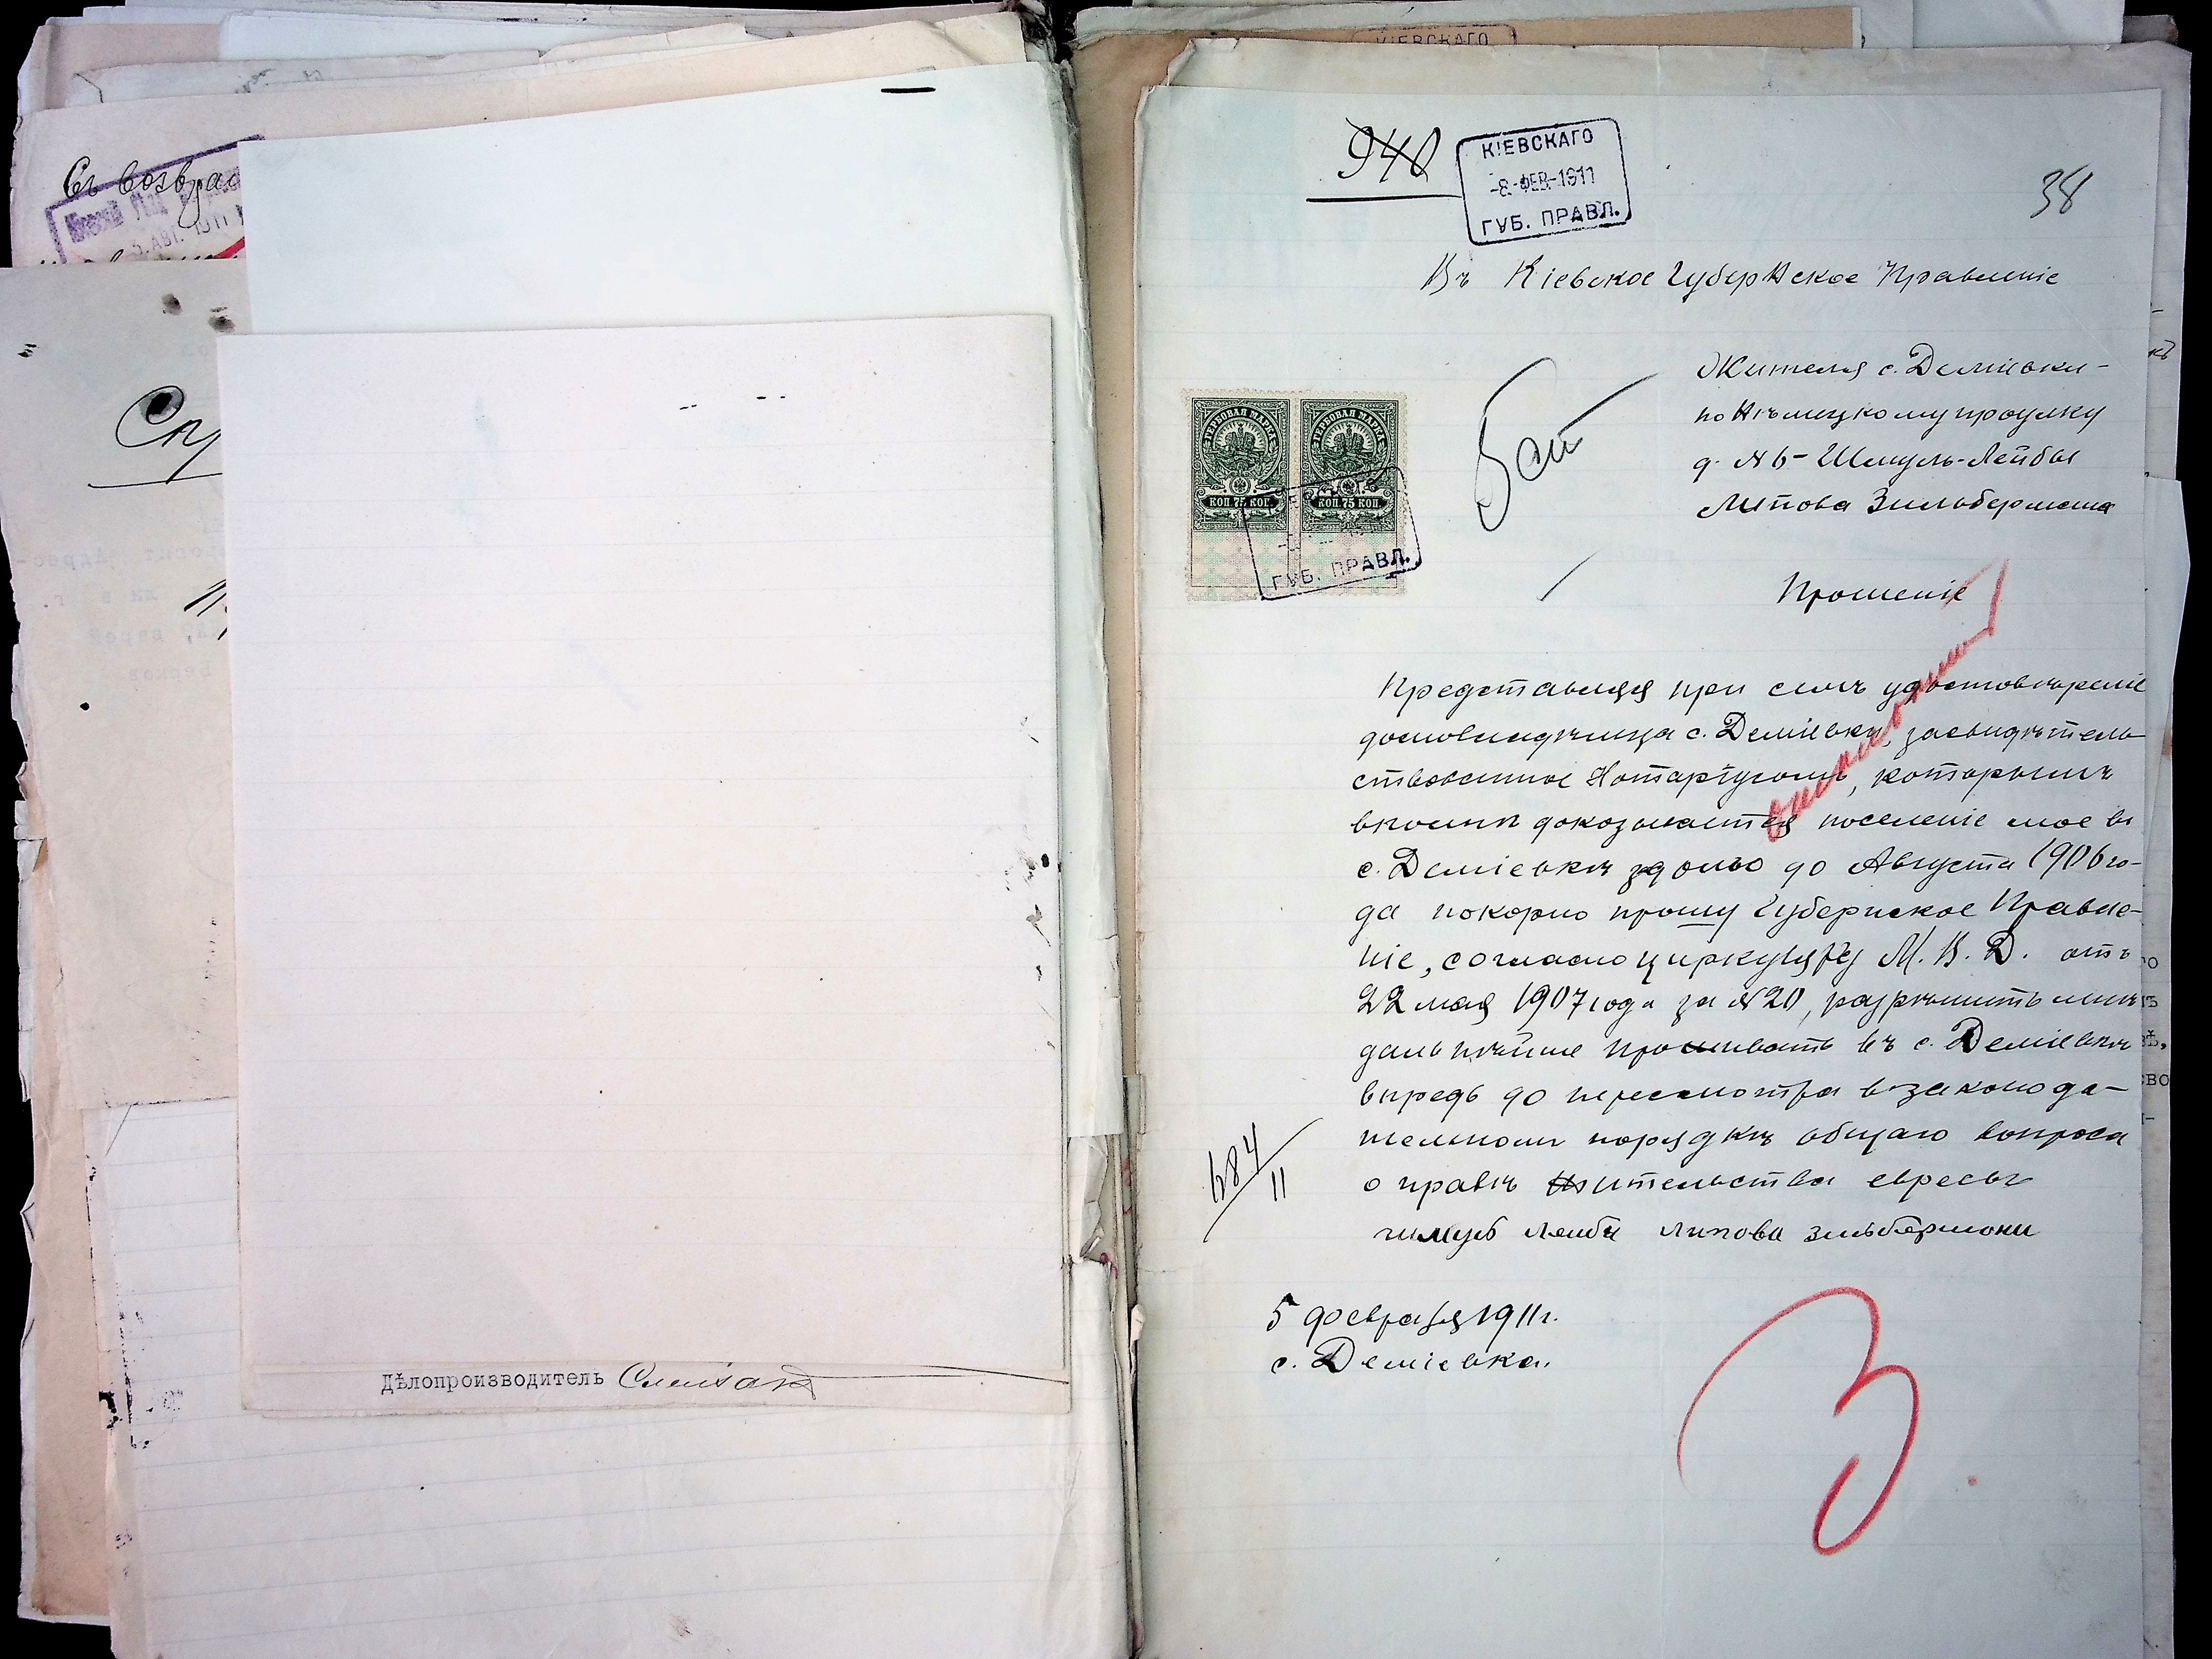 Съ возвра
5. АВГ. 1911
Спр
Дѣлопроизводитель
КІЕВСКАГО
940
КІЕВСКАГО
-8-ФЕВ-1911
ГУБ. ПРАВЛ.
38
Въ Кіевское Губернское Правленіе
Жителя с. Деміевки-
по Нѣмецкому проулку
д. № 6- Шмуль-Лейбы
Липова Зильбермана
ГЕРБОВАЯ МАРКА ГЕРБОВАЯ МАРКА
КОП. 75 КОП. КОП. 75 КОП.
ГУБ. ПРАВЛ.
Прошеніе
Представляя при семъ удостовѣреніе
домовладѣльца с. Деміевки, засвидѣтель-
ствованное Нотаріусомъ, которымъ
вполнѣ доказывается поселеніе мое въ
с. Деміевкѣ задолго до Августа 1906 го-
да покорно прошу Губернское Правле-
ніе, согласно циркуляру М. В. Д. отъ
22 мая 1907 года за № 20, разрѣшить мнѣ
дальнѣйше проживать въ с. Деміевкѣ
впредь до пересмотра в законода-
тельномъ порядкѣ общаго вопроса
о правѣ жительства евреевъ
шмуль лейбы липова зильбермони
684
11
5 февраля 1911 г.
с. Деміевка.
З.